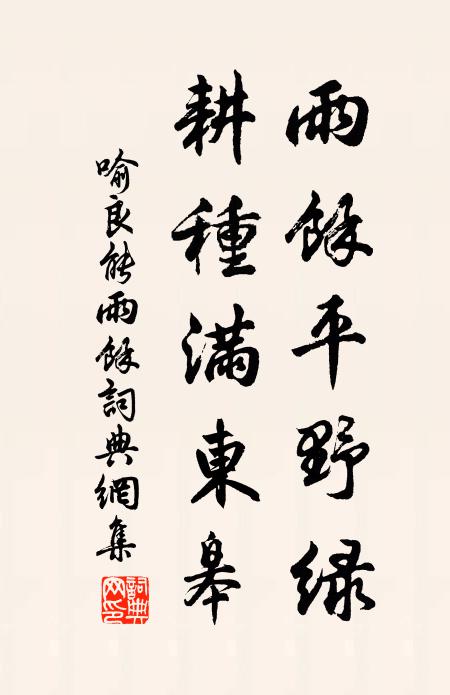 雨餘平野緑
耕種滿東皋
喻良能雨餘詞典網集
詞典网印